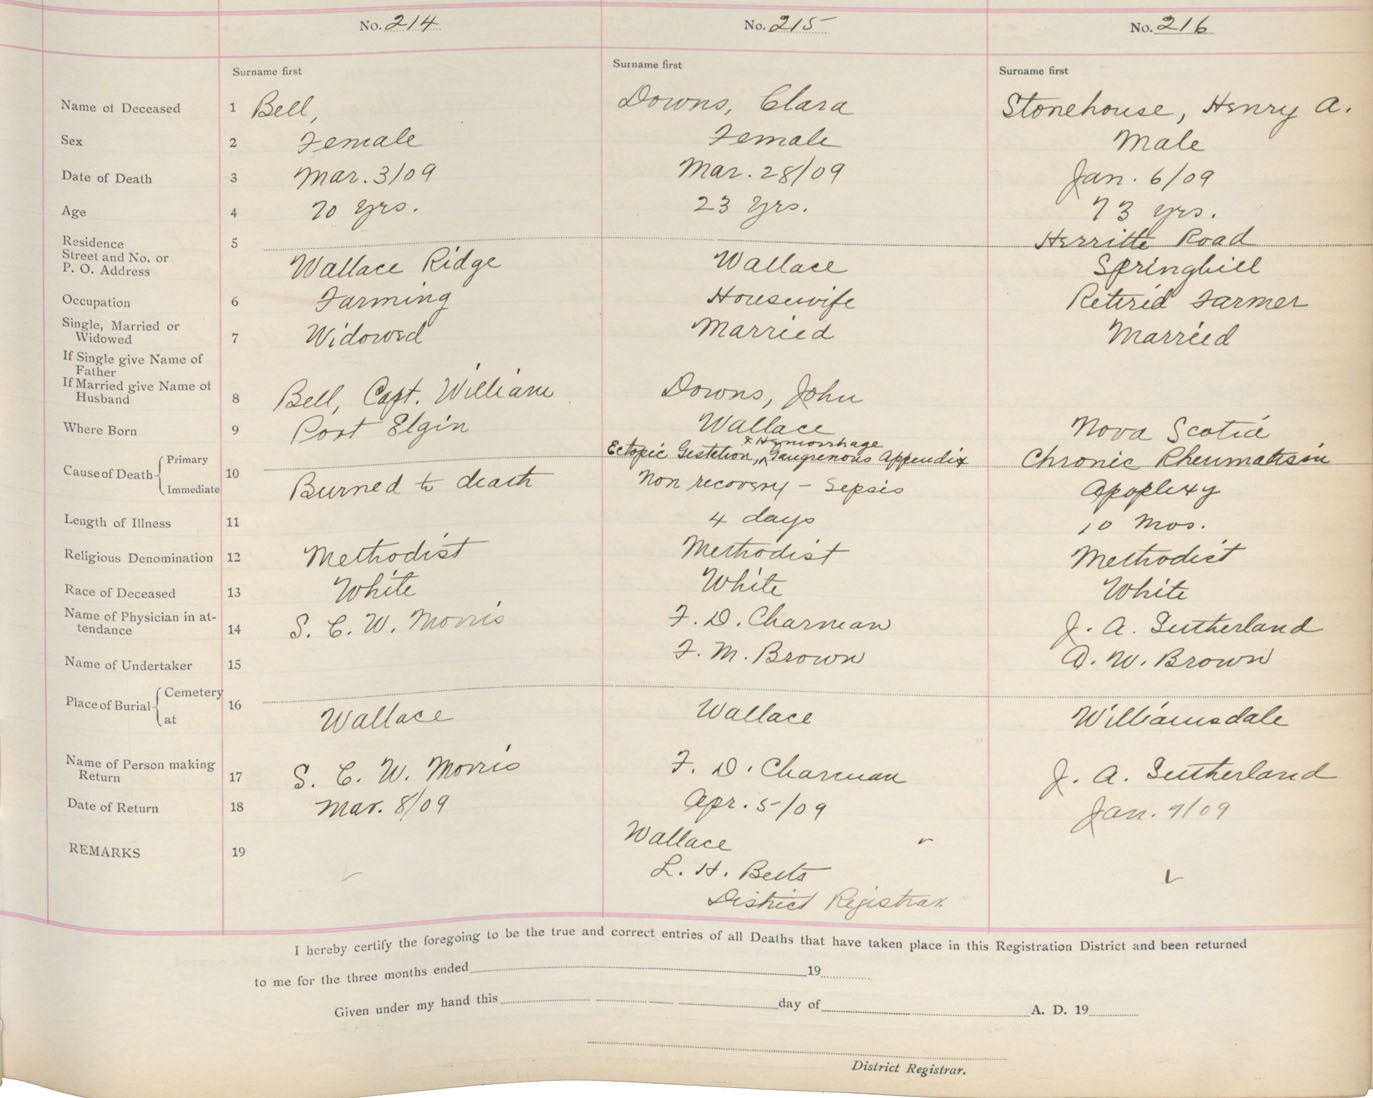 No. 214 No. 215 No. 216
Surname first Surname first Surname first
Name of Deceased 1 Bell, Downs, Clara Stonehouse, Henry A.
Sex 2 Female Female Male
Date of Death 3 Mar. 3/09 Mar. 28/09 Jan. 6/09
Age 4 70 yrs. 23 yrs. 73 yrs.
Residence 5 Herritte Road
Street and No. or
P. O. Address Wallace Ridge Wallace Springhill
Occupation 6 Farming Housewife Retired Farmer
Single, Married or
Widowed 7 Widowed Married Married
If Single give Name of
Father
If Married give Name of
Husband 8 Bell, Capt. William Downs, John
Where Born 9 Port Elgin Wallace Nova Scotia
& Hemorrhage
Cause of Death Primary 10 Ectopic Gestation, Gangrenous Appendix Chronic Rheumatism
Immediate Burned to death Non recovery - Sepsis Apoplexy
Length of Illness 11 4 days 10 mos.
Religious Denomination 12 Methodist Methodist Methodist
Race of Deceased 13 White White White
Name of Physician in at-
tendance 14 S. C. W. Morris F. D. Charman J. A. Sutherland
Name of Undertaker 15 F. M. Brown A. W. Brown
Place of Burial Cemetery 16
at Wallace Wallace Williamsdale
Name of Person making
Return 17 S. C. W. Morris F. D. Charman J. A. Sutherland
Date of Return 18 Mar. 8/09 Apr. 5/09 Jan. 7/09
REMARKS 19 Wallace
L. H. Betts
District Registrar.
I hereby certify the foregoing to be the true and correct entries of all Deaths that have taken place in this Registration District and been returned
to me for the three months ended 19
Given under my hand this day of A. D. 19
District Registrar.